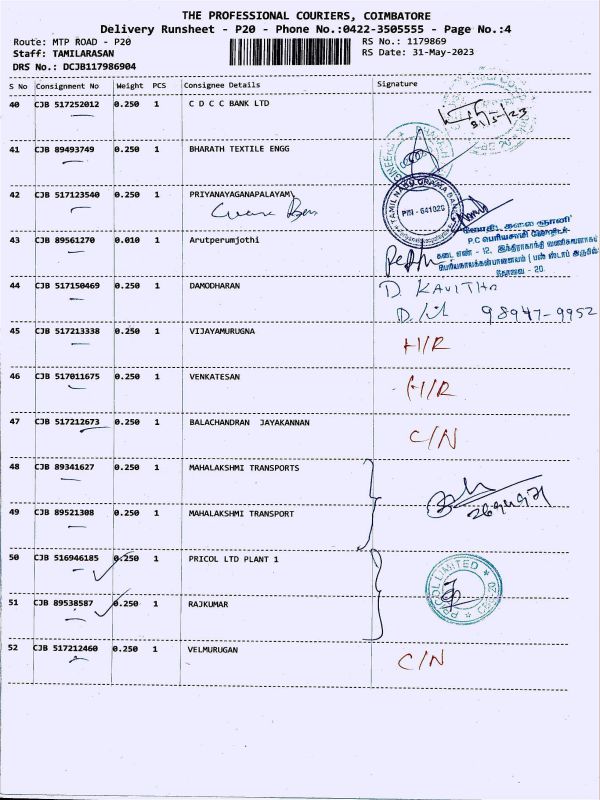 THE PROFESSIONAL COURIERS, COIMBATORE
Delivery Runsheet - P20 - Phone No.:0422-3505555 - Page No.:4
Route: MTP ROAD - P20 RS No.: 1179869
Staff: TAMILARASAN RS Date: 31-May-2023
DRS No.: DCJB117986904
S No Consignment No Weight PCS Consignee Details Signature
40 CJB 517252012 0.250 1 C D C C BANK LTD
31/5/23
41 CJB 89493749 0.250 1 BHARATH TEXTILE ENGG
42 CJB 517123540 0.250 1 PRIYANAYAGANAPALAYAM
TAMIL NADU GRAMA BANK
PIN - 641020
43 CJB 89561270 0.010 1 Arutperumjothi
கோவை - 20.
44 CJB 517150469 0.250 1 DAMODHARAN D. KAVITHA
98947-9952
45 CJB 517213338 0.250 1 VIJAYAMURUGNA H/R
46 CJB 517011675 0.250 1 VENKATESAN H/R
47 CJB 517212673 0.250 1 BALACHANDRAN JAYAKANNAN C/N
48 CJB 89341627 0.250 1 MAHALAKSHMI TRANSPORTS
49 CJB 89521308 0.250 1 MAHALAKSHMI TRANSPORT
50 CJB 516946185 0.250 1 PRICOL LTD PLANT 1
PRICOL LIMITED
51 CJB 89538587 0.250 1 RAJKUMAR
52 CJB 517212460 0.250 1 VELMURUGAN C/N